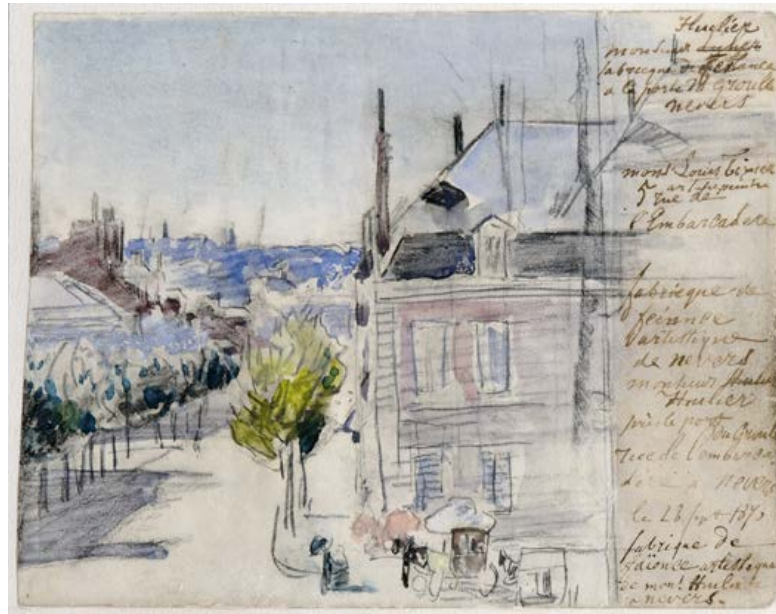 Huglier
monsieur
fabriegue de feiance
a la porte du Groulle
nevers
mons Louis
5 artiste peintre
rue de
l'Embarcadere
fabriegue de
feiance
artistique
de nevers
monsieur Houlier
Houlier
près le port
du Groule
rue de l'ombarca
dere a nevers
le 23
fabrique de
faïence artistique
de mons! Hulier
a nevers.